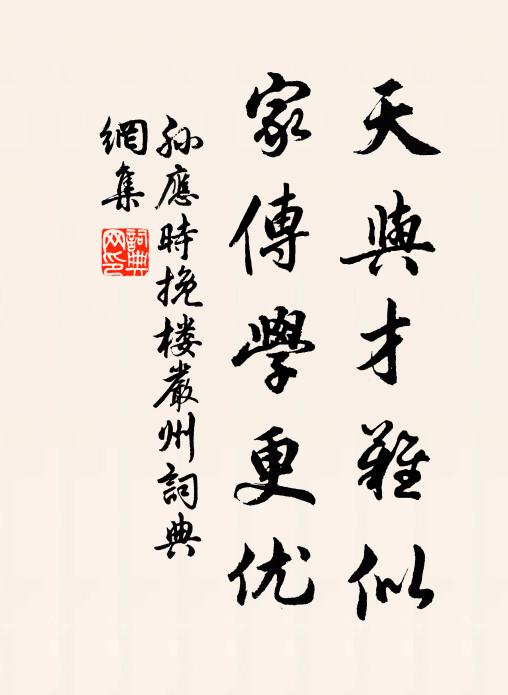 天與才難似
家傳學更优
孙應時挽楼嚴州詞典
網集
詞典
网印